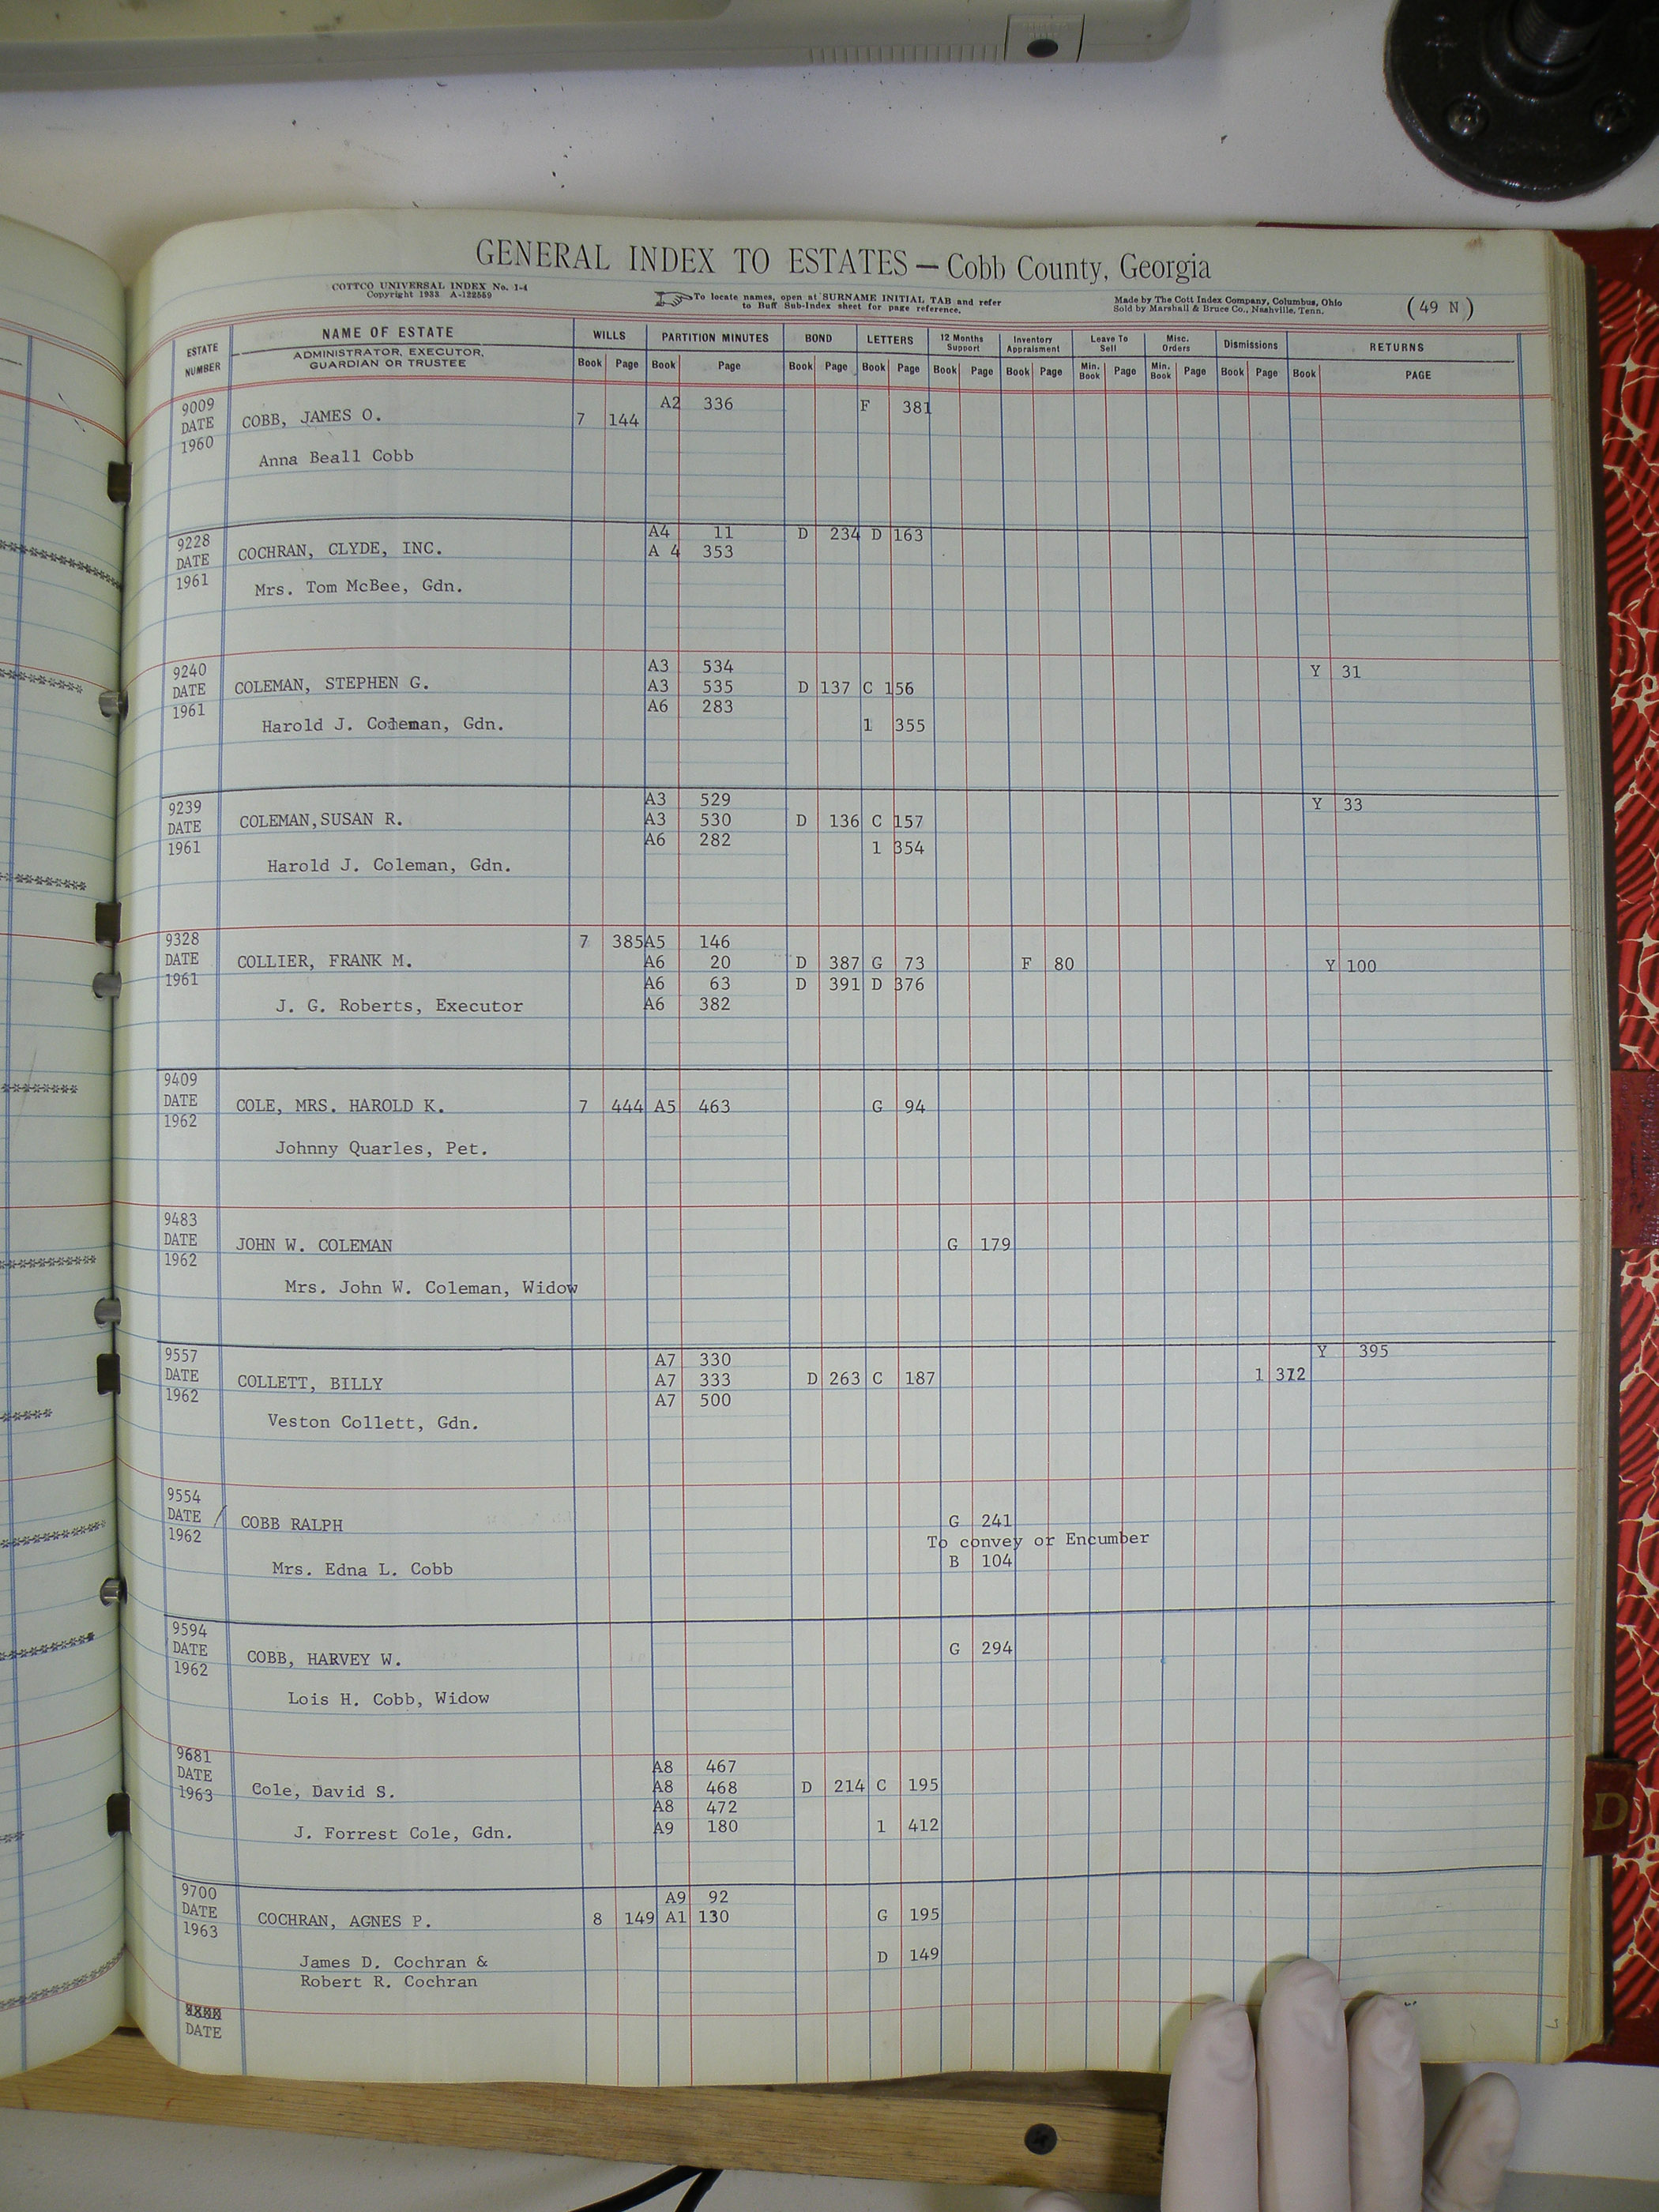 GENERAL INDEX TO ESTATES — Cobb County, Georgia
COTTCO UNIVERSAL INDEX No. 1-4
Copyright 1933 A-122559
To locate names, open at SURNAME INITIAL TAB and refer
to Buff Sub-Index sheet for page reference.
Made by The Cott Index Company, Columbus, Ohio
Sold by Marshall & Bruce Co., Nashville, Tenn.
(49 N)
ESTATE NUMBER
NAME OF ESTATE
ADMINISTRATOR, EXECUTOR,
GUARDIAN OR TRUSTEE
WILLS PARTITION MINUTES BOND LETTERS 12 Months Support Inventory Appraisment Leave To Sell Misc. Orders Dismissions RETURNS
Book Page Book Page Book Page Book Page Book Page Book Page Min. Book Page Min. Book Page Book Page Book PAGE
9009 A2 336 F 381
DATE COBB, JAMES O. 7 144
1960
Anna Beall Cobb
9228 A4 11 D 234 D 163
DATE COCHRAN, CLYDE, INC. A 4 353
1961
Mrs. Tom McBee, Gdn.
9240 A3 534 Y 31
DATE COLEMAN, STEPHEN G. A3 535 D 137 C 156
1961 A6 283
Harold J. Coleman, Gdn. 1 355
9239 A3 529 Y 33
DATE COLEMAN,SUSAN R. A3 530 D 136 C 157
1961 A6 282 1 354
Harold J. Coleman, Gdn.
9328 7 385 A5 146
DATE COLLIER, FRANK M. A6 20 D 387 G 73 F 80 Y 100
1961 A6 63 D 391 D 376
J. G. Roberts, Executor A6 382
9409
DATE COLE, MRS. HAROLD K. 7 444 A5 463 G 94
1962
Johnny Quarles, Pet.
9483
DATE JOHN W. COLEMAN G 179
1962
Mrs. John W. Coleman, Widow
9557 A7 330 Y 395
DATE COLLETT, BILLY A7 333 D 263 C 187 1 312
1962 A7 500
Veston Collett, Gdn.
9554
DATE / COBB RALPH G 241
1962 To convey or Encumber
B 104
Mrs. Edna L. Cobb
9594
DATE COBB, HARVEY W. G 294
1962
Lois H. Cobb, Widow
9681 A8 467
DATE Cole, David S. A8 468 D 214 C 195
1963 A8 472
J. Forrest Cole, Gdn. A9 180 1 412
9700 A9 92
DATE COCHRAN, AGNES P. 8 149 A1 130 G 195
1963
James D. Cochran & D 149
Robert R. Cochran
DATE
D